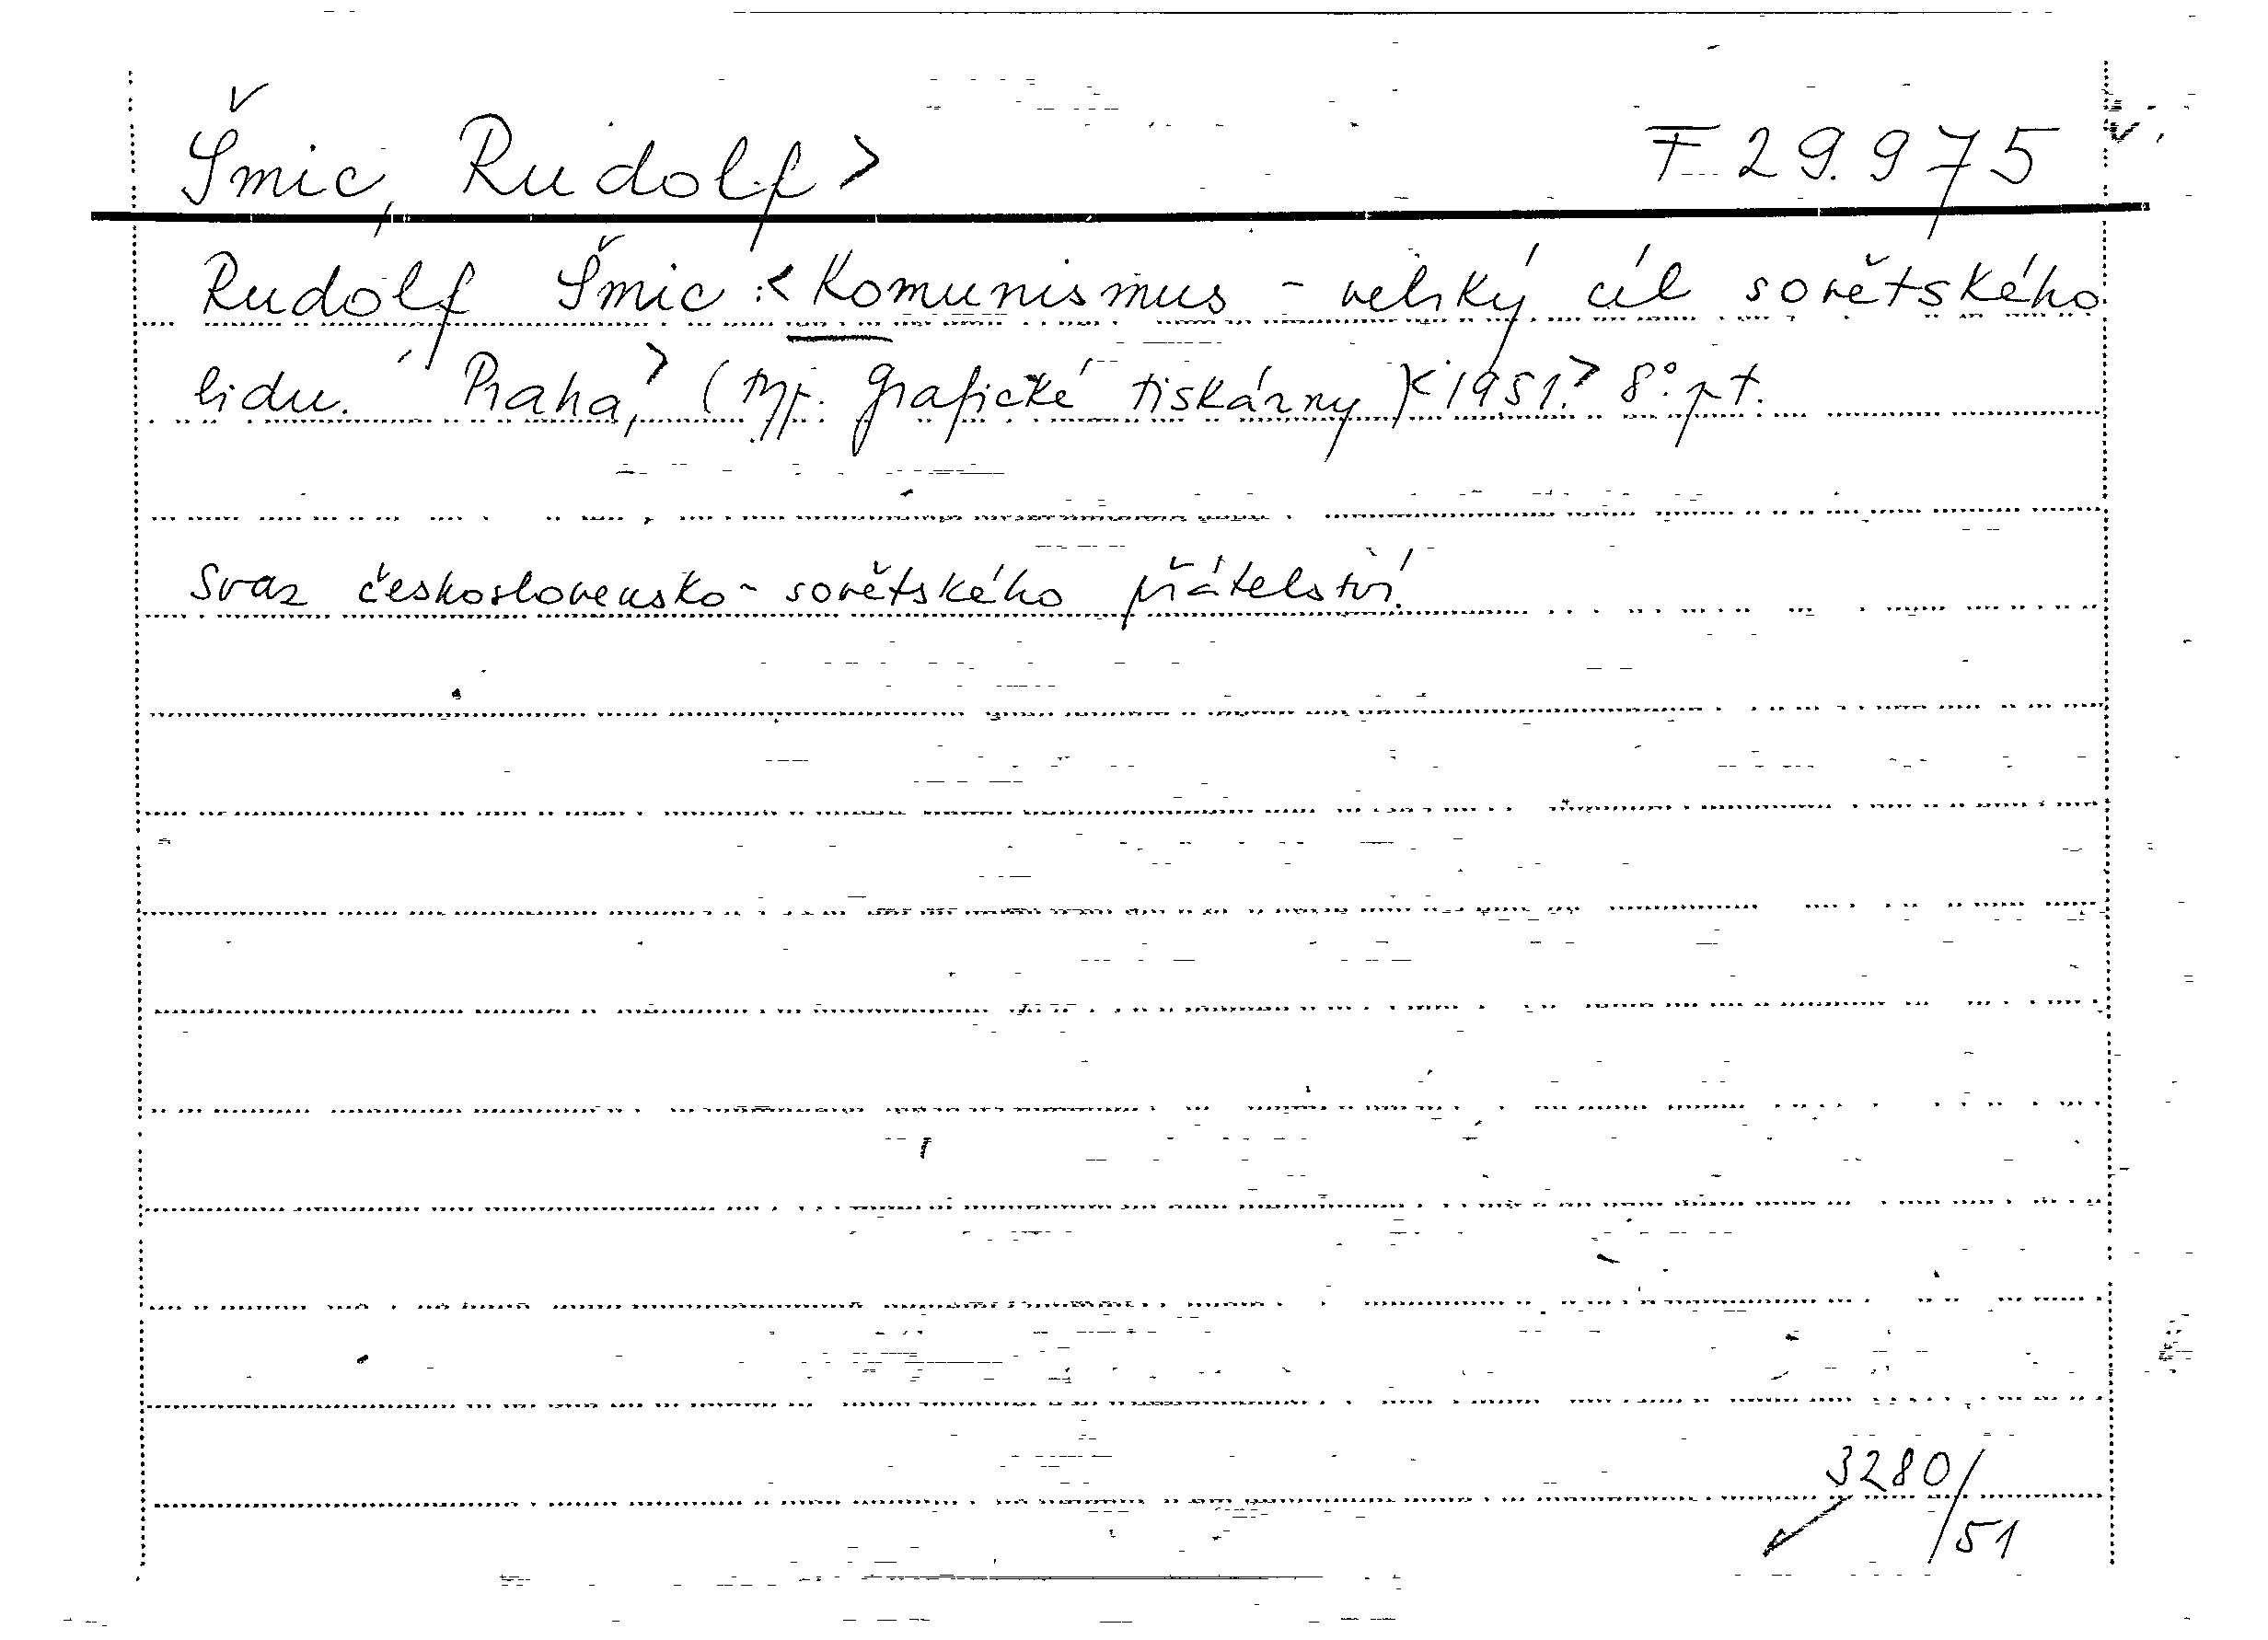 Šmic, Rudolf> F 29.975
Rudolf Šmic :< Komunismus - velký cíl sovětského
lidu. Praha,> (typ. Grafické tiskárny)<1951.> 8°. pt.
Svaz československo-sovětského přátelství.
3280/
51